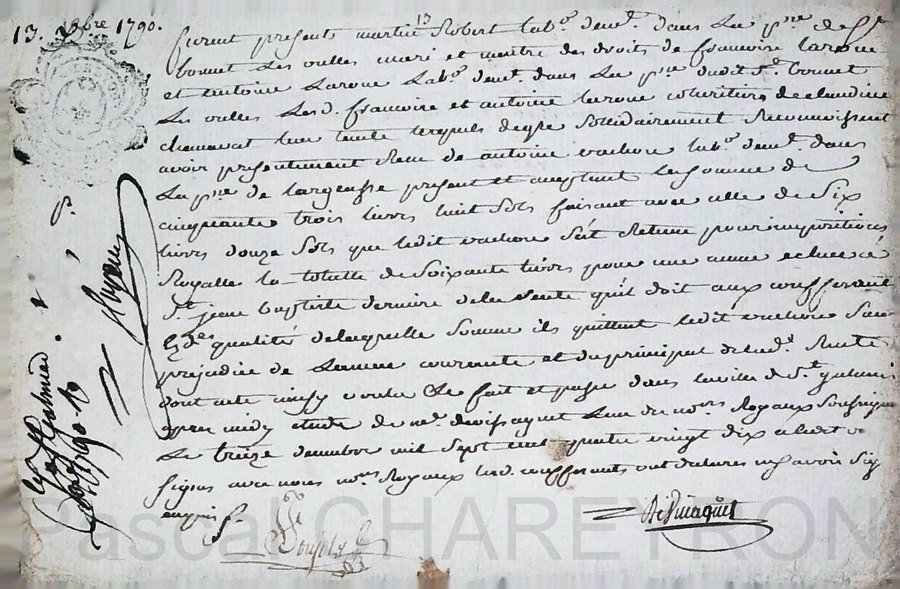 13. 9bre 1790.
13
furent présents martin Robert lab.r dem.t dans La p.sse de St
bonnet Les oulles mari et maitre des droits de francoise larone
et antoine Larone Lab.r dem.t dans La p.sse dudit St bonnet
Les oulles Lesd. francoise et antoine larone cohéritiers de claudine
chanavat leur tante lesquels de gré solidairement Reconnoissent
avoir présentement Recu de antoine vachon lab.r dem.t dans
La p.sse de largeasse présent et acceptant la somme de
cinquante trois livres huit sols faisant avec celle de six
livres douze sols que ledit vachon s'est Retenu pour impositions
Royalles la totalle de soixante livres pour une année échue a la
St jean baptiste derniere de la Rente qu'il doit aux confessants
esd.es qualités de laquelle somme ils quittent ledit vachon sans
préjudice de L'année courante et du principal de lad. Rente
dont acte ainsy voulu Le fait et passé dans la ville de St galmier
apres midy étude de me. L'un de nos. Royaux soussignés
Le treize novembre mil sept cent quatre vingt dix
signés avec nous no.res Royaux lesd. confessants ont déclarés ne savoir sig
enquis
Pascal CHAREYRON